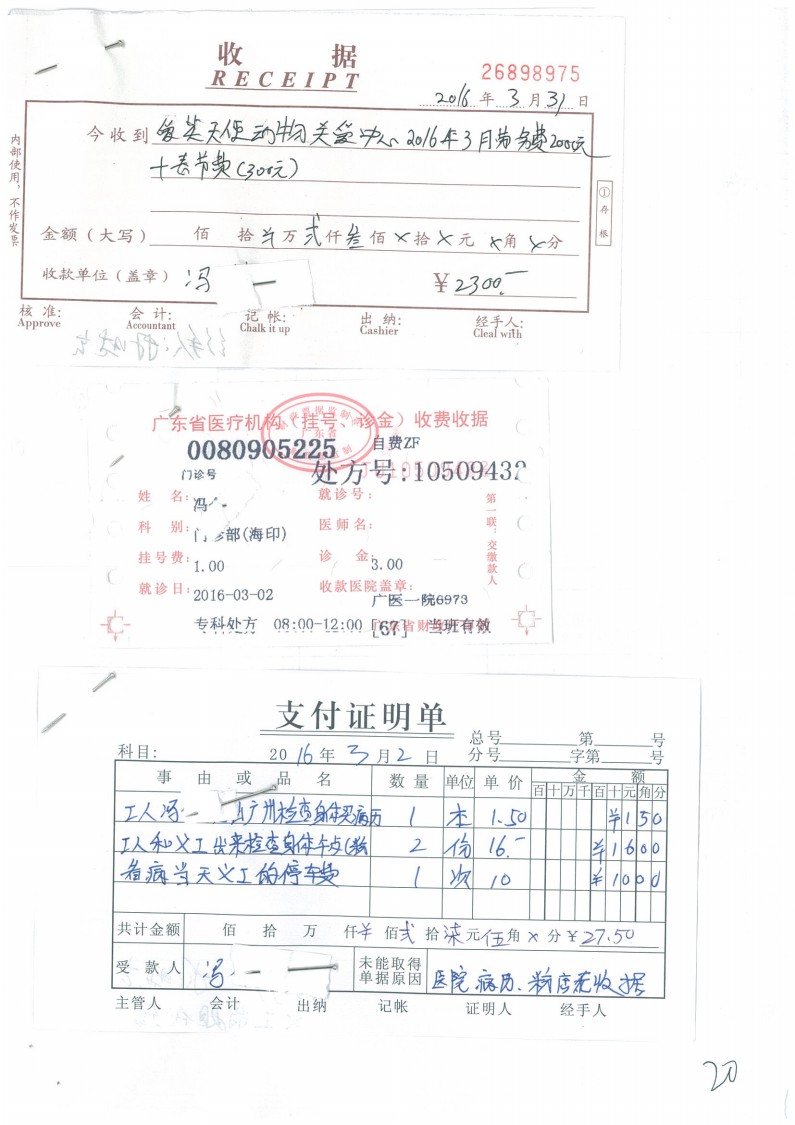 收 据
RECEIPT
26898975
2016 年 3 月 31 日
今收到 爱芷天使动物关爱中心 2016年3月劳务费2000元
十春节费(300元)
内部使用，不作发票
① 存根
金额（大写） 佰 拾 万 贰 仟 叁 佰 × 拾 × 元 × 角 × 分
收款单位（盖章） 冯
¥ 2300.-
核 准: 会 计: 记 帐: 出 纳: 经手人:
Approve Accountant Chalk it up Cashier Cleal with
广东省医疗机构（挂号、诊金）收费收据
0080905225 自费ZF
门诊号 处方号:1050943
姓 名: 冯 就诊号:
科 别: 门诊部(海印) 医师名:
挂号费: 1.00 诊 金: 3.00
就诊日: 2016-03-02 收款医院盖章:
广医一院6973
专科处方 08:00-12:00 [67] 当班有效
第一联：交缴款人
支付证明单
总号 第 号
科目: 2016 年 3 月 2 日 分号 字第 号
事 由 或 品 名 数 量 单位 单 价 金 额
百十万千百十元角分
工人冯 广州检查身体买病历 1 本 1.50 ¥150
工人和义工出来检查身体午点 2 份 16.- ¥1600
看病当天义工的停车费 1 次 10 ¥1000
共计金额 佰 拾 万 仟 佰 贰 拾 柒 元 伍 角 × 分 ¥ 27.50
受 款 人 冯 未能取得单据原因 医院、病历、粉店无收据
主管人 会计 出纳 记帐 证明人 经手人
20